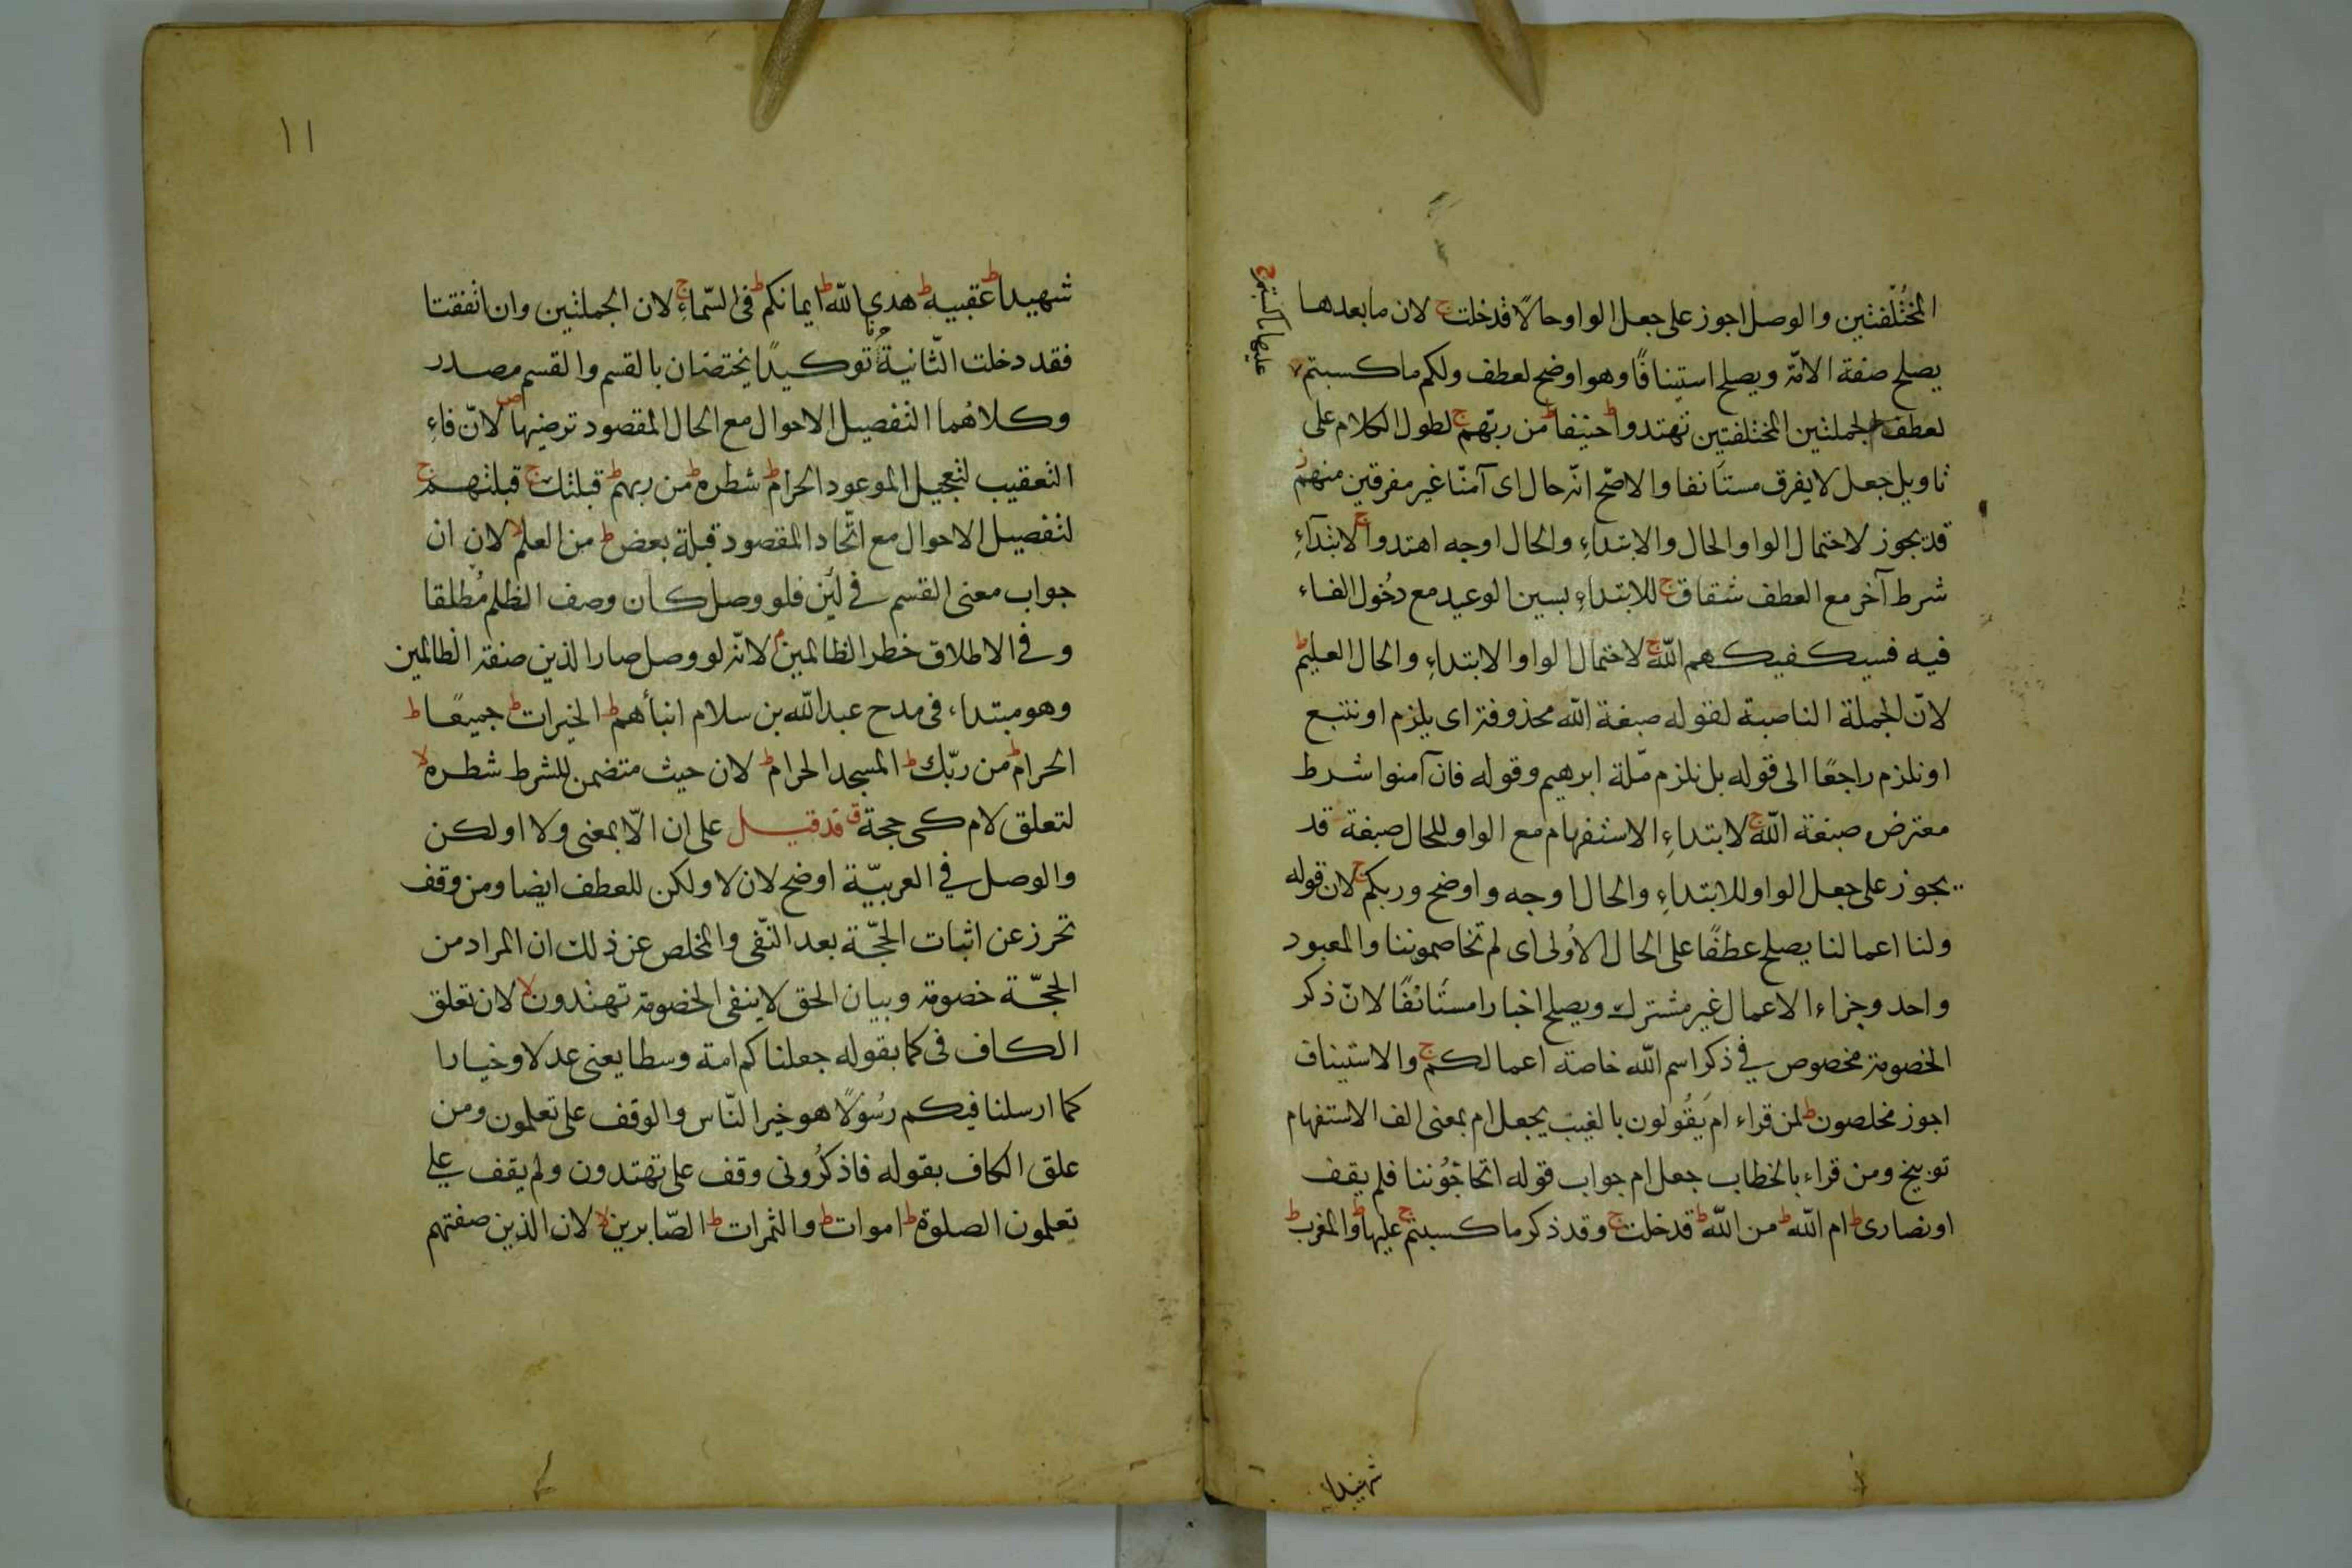 المختلفتين والوصل اجوز على جعل الواو حالا قد خلت ج لان ما بعدها
يصلح صفة الامّة ويصلح استينافًا وهو اوضح لعطف ولكم ما كسبتم
لعطف الجملتين المختلفتين تهتدوا ط حنيفا ط من ربّهم ج لطول الكلام على
تاويل جعل لا يفرق مستأنفا والاصّح انّه حال اى آمنّا غير مفرقين منهم ز
قد يجوز لاحتمال الواو الحال والابتداءِ والحال اوجه اهتدوا ج لابتدآءِ
شرط آخر مع العطف شقاق ج للابتداءِ بسين الوعيد مع دخُول الفاء
فيه فسيكفيكهم الله ج لاحتمال الواو الابتداءِ والحال العليم ط
لانّ الجملة الناصبة لقوله صبغة الله محذوفة اى يلزم او نتبع
او نلزم راجعًا الى قوله بل نلزم ملّة ابرهيم وقوله فان آمنوا شرط
معترض صبغة الله ج لابتداءِ الاستفهام مع الواو للحال صبغة قد
يجوز على جعل الواو للابتداءِ والحال اوجه واوضح وربكم ج لان قوله
ولنا اعمالنا يصلح عطفًا على الحال الاُولى اى لم تخاصموننا والمعبود
واحد وجزاء الاعمال غير مشترك ويصلح اخبارا مستَانَفًا لانّ ذكر
الخصومة مخصوص فى ذكر اسم الله خاصة اعمالكم ج والاستيناف
اجوز مخلصون ط لمن قراء ام يَقُولون بالغيبَ يجعل ام بمعنى الف الاستفهام
توبيخ ومن قراء بالخطاب جعل ام جواب قوله اتحاجّوُننا فلم يقف
او نصارى ط ام الله ط من الله ط قد خلت ج وقد ذكر ما كسبتم ج عليها ط والمغرب ط
شهيدا
١١
شهيدا ط عقبيه ط هدى الله ط ايمانكم ط فى السّماءِ ج لان الجملتين وان اتفقتا
فقد دخلت الثّانية توكيدًا يختصّان بالقسم والقسم مصدر
وكلاهُما التفصيل الاحوال مع الحال المقصود ترضيها ص لانّ فاءِ
التعقيب لتعجيل الموعود الحرام ط شطره ط من ربهم ط قبلتك ج قبلتهم ج
لتفصيل الاحوال مع اتّحاد المقصود قبلة بعض ط من العلم لا لان ان
جواب معنى القسم فى لئِن فلو وصل كان وصف الظلم مُطلقا
وفى الاطلاق خطر الظالمين م لانّه لو وصل صار الذين صفة الظالمين
وهو مبتداء فى مدح عبد الله بن سلام ابنأهم ط الخيرات ط جميعًا ط
الحرام ط من ربّك ط المسجد الحرام ط لان حيث متضمن للشرط شطره لا
لتعلق لام كى حجة ق قد قيل على ان الّا بمعنى ولا او لكن
والوصل فى العربيّة اوضح لان لا ولكن للعطف ايضا ومن وقف
تحرز عن اثبات الحجّة بعد النّفى والمخلص عن ذلك ان المراد من
الحجّة خصومة وبيان الحق لا ينفى الخصومة تهتدون لا لان تعلق
الكاف فى كما بقوله جعلناكم امة وسطا يعنى عدلا وخيارا
كما ارسلنا فيكم رسُولًا هو خير النّاس والوقف على تعلمون ومن
علق الكاف بقوله فاذكُرونى وقف على تهتدون ولم يقف على
تعلمون الصلوة ط اموات ط والثمرات ط الصّابرين لا لان الذين صفتهم